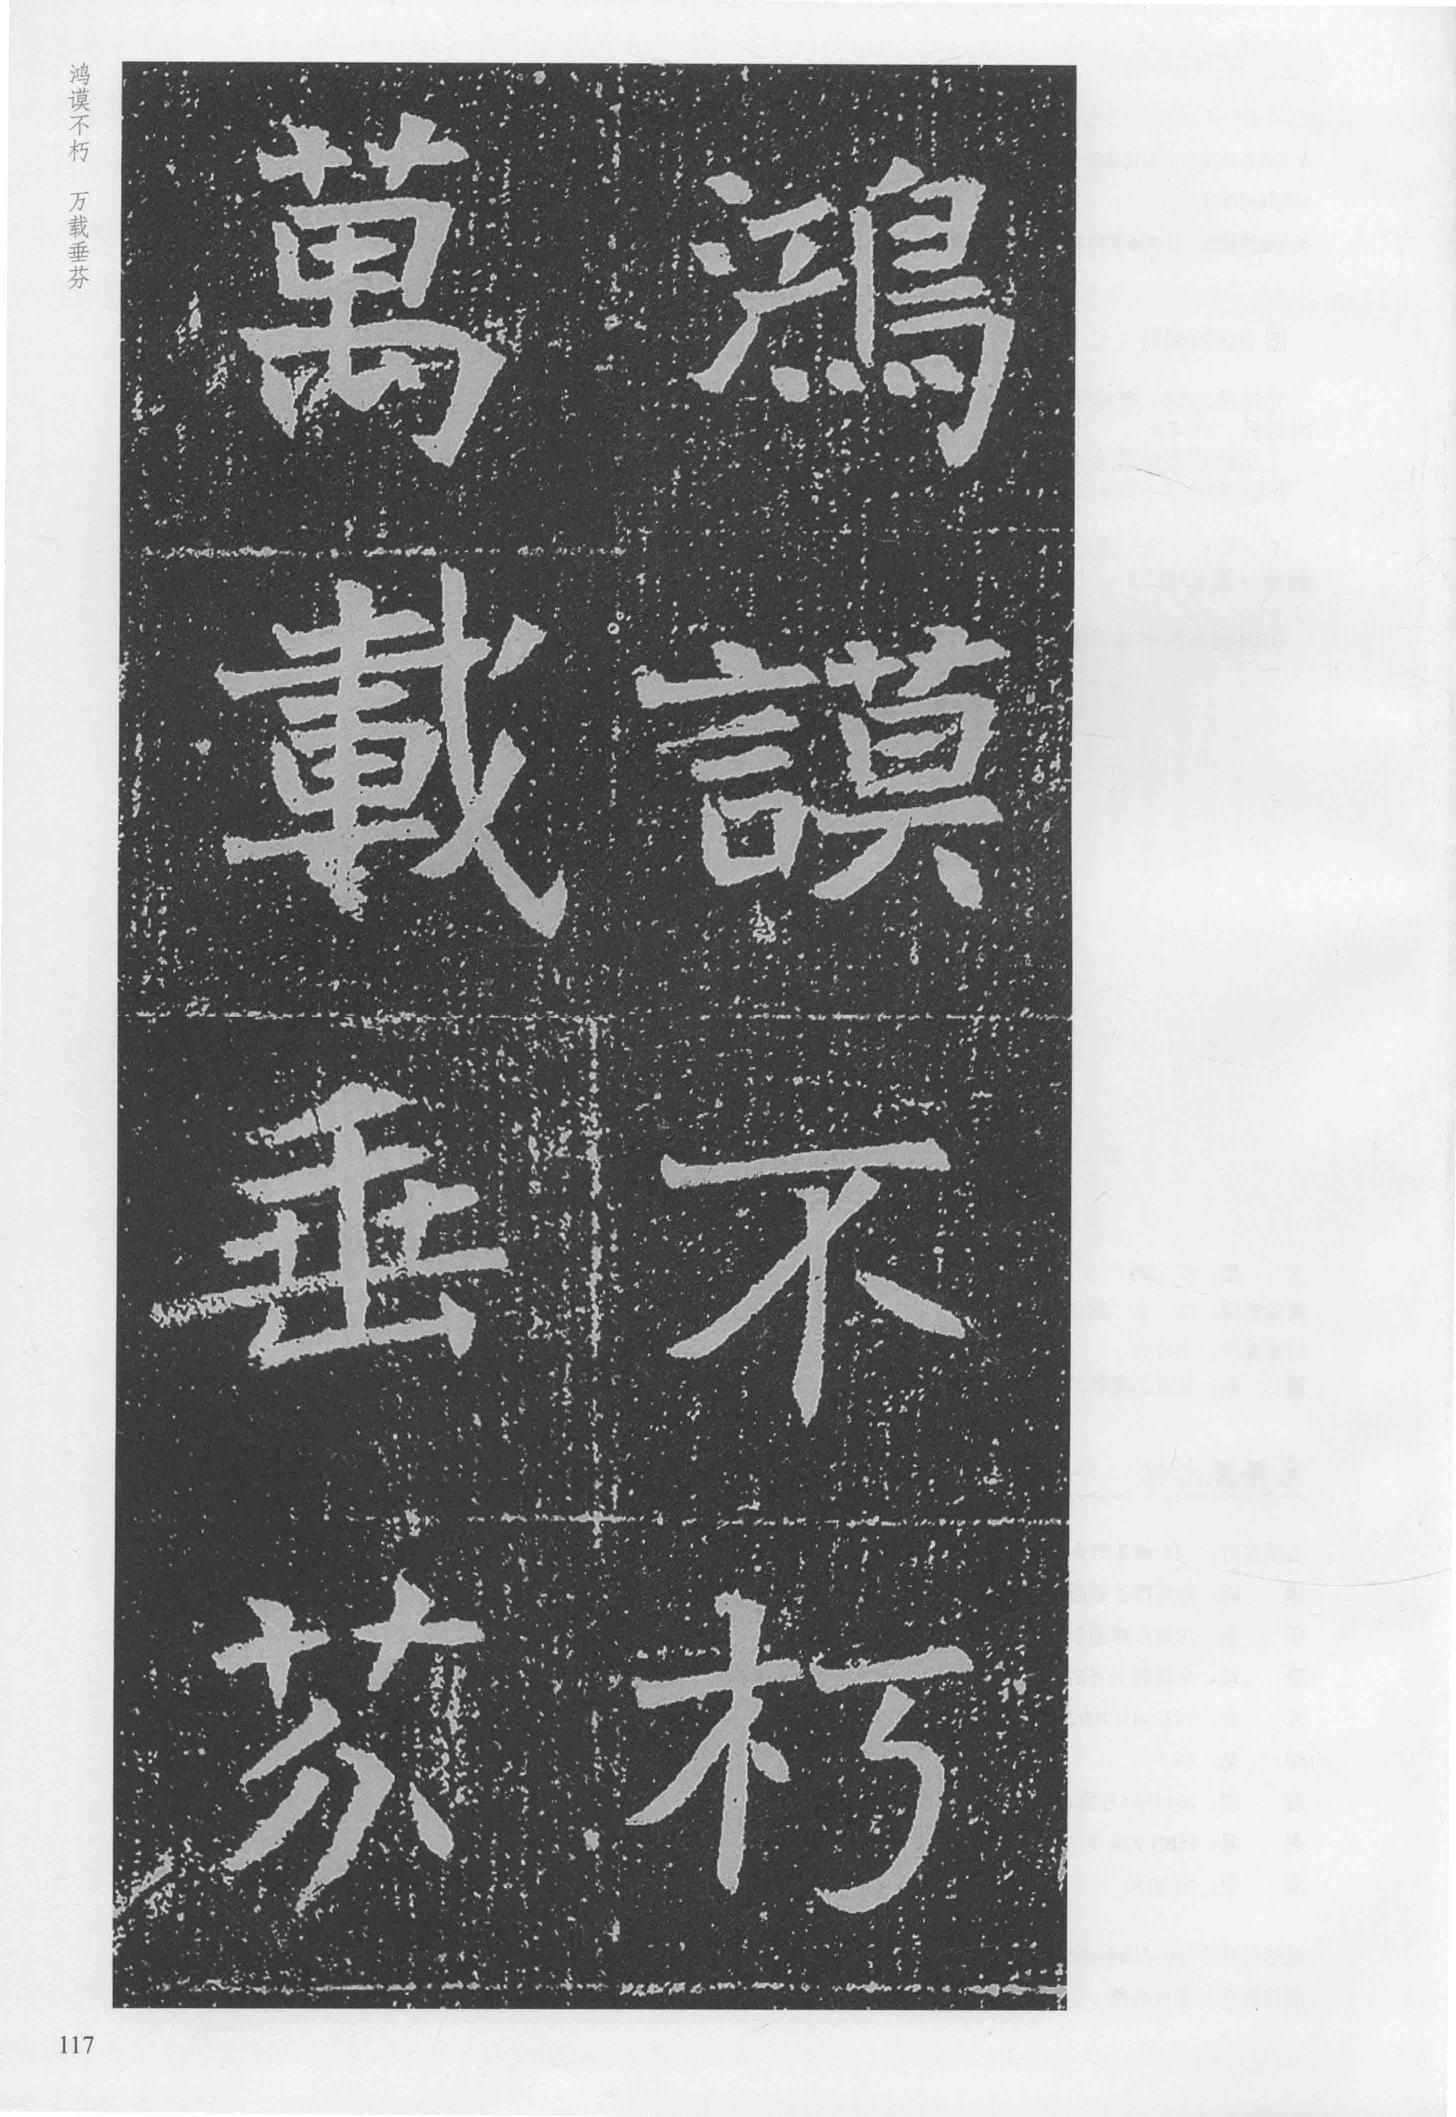 鴻謨不朽
萬載垂芬
鸿谟不朽 万载垂芬
117